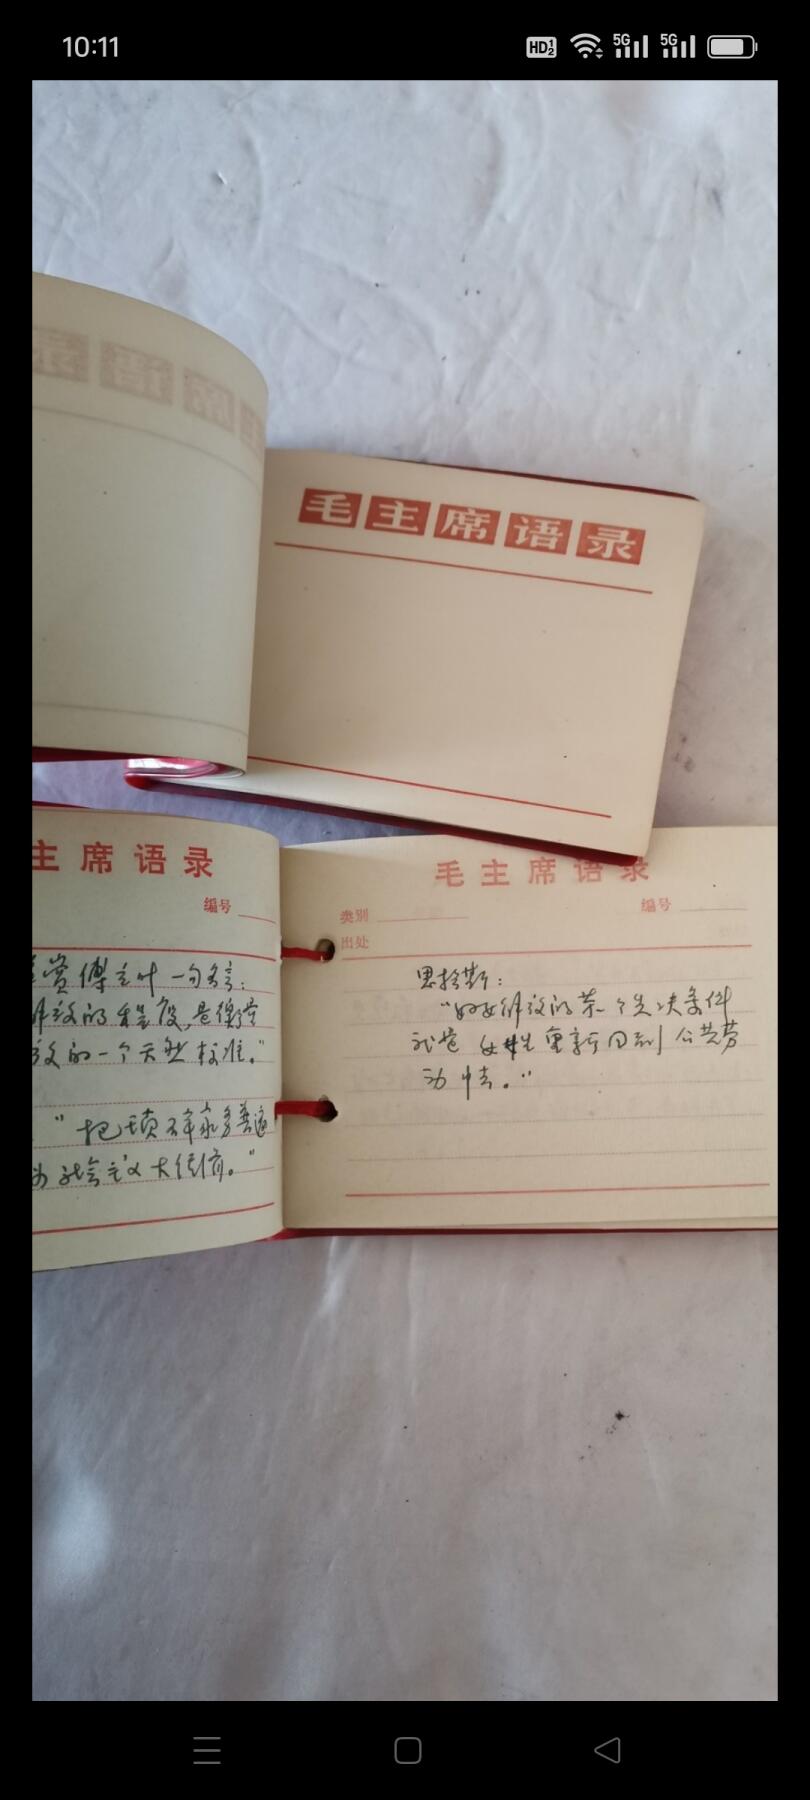 10:11
毛主席语录
主席语录
编号
赏傅立叶一句名言:
放的程度,是衡量
放的一个天然标准。"
"把琐碎家务普遍
为社会主义大经济。"
毛主席语录
类别
编号
出处
恩格斯:
"妇女解放的第一个先决条件
就是女性重新回到公共劳
动中去。"